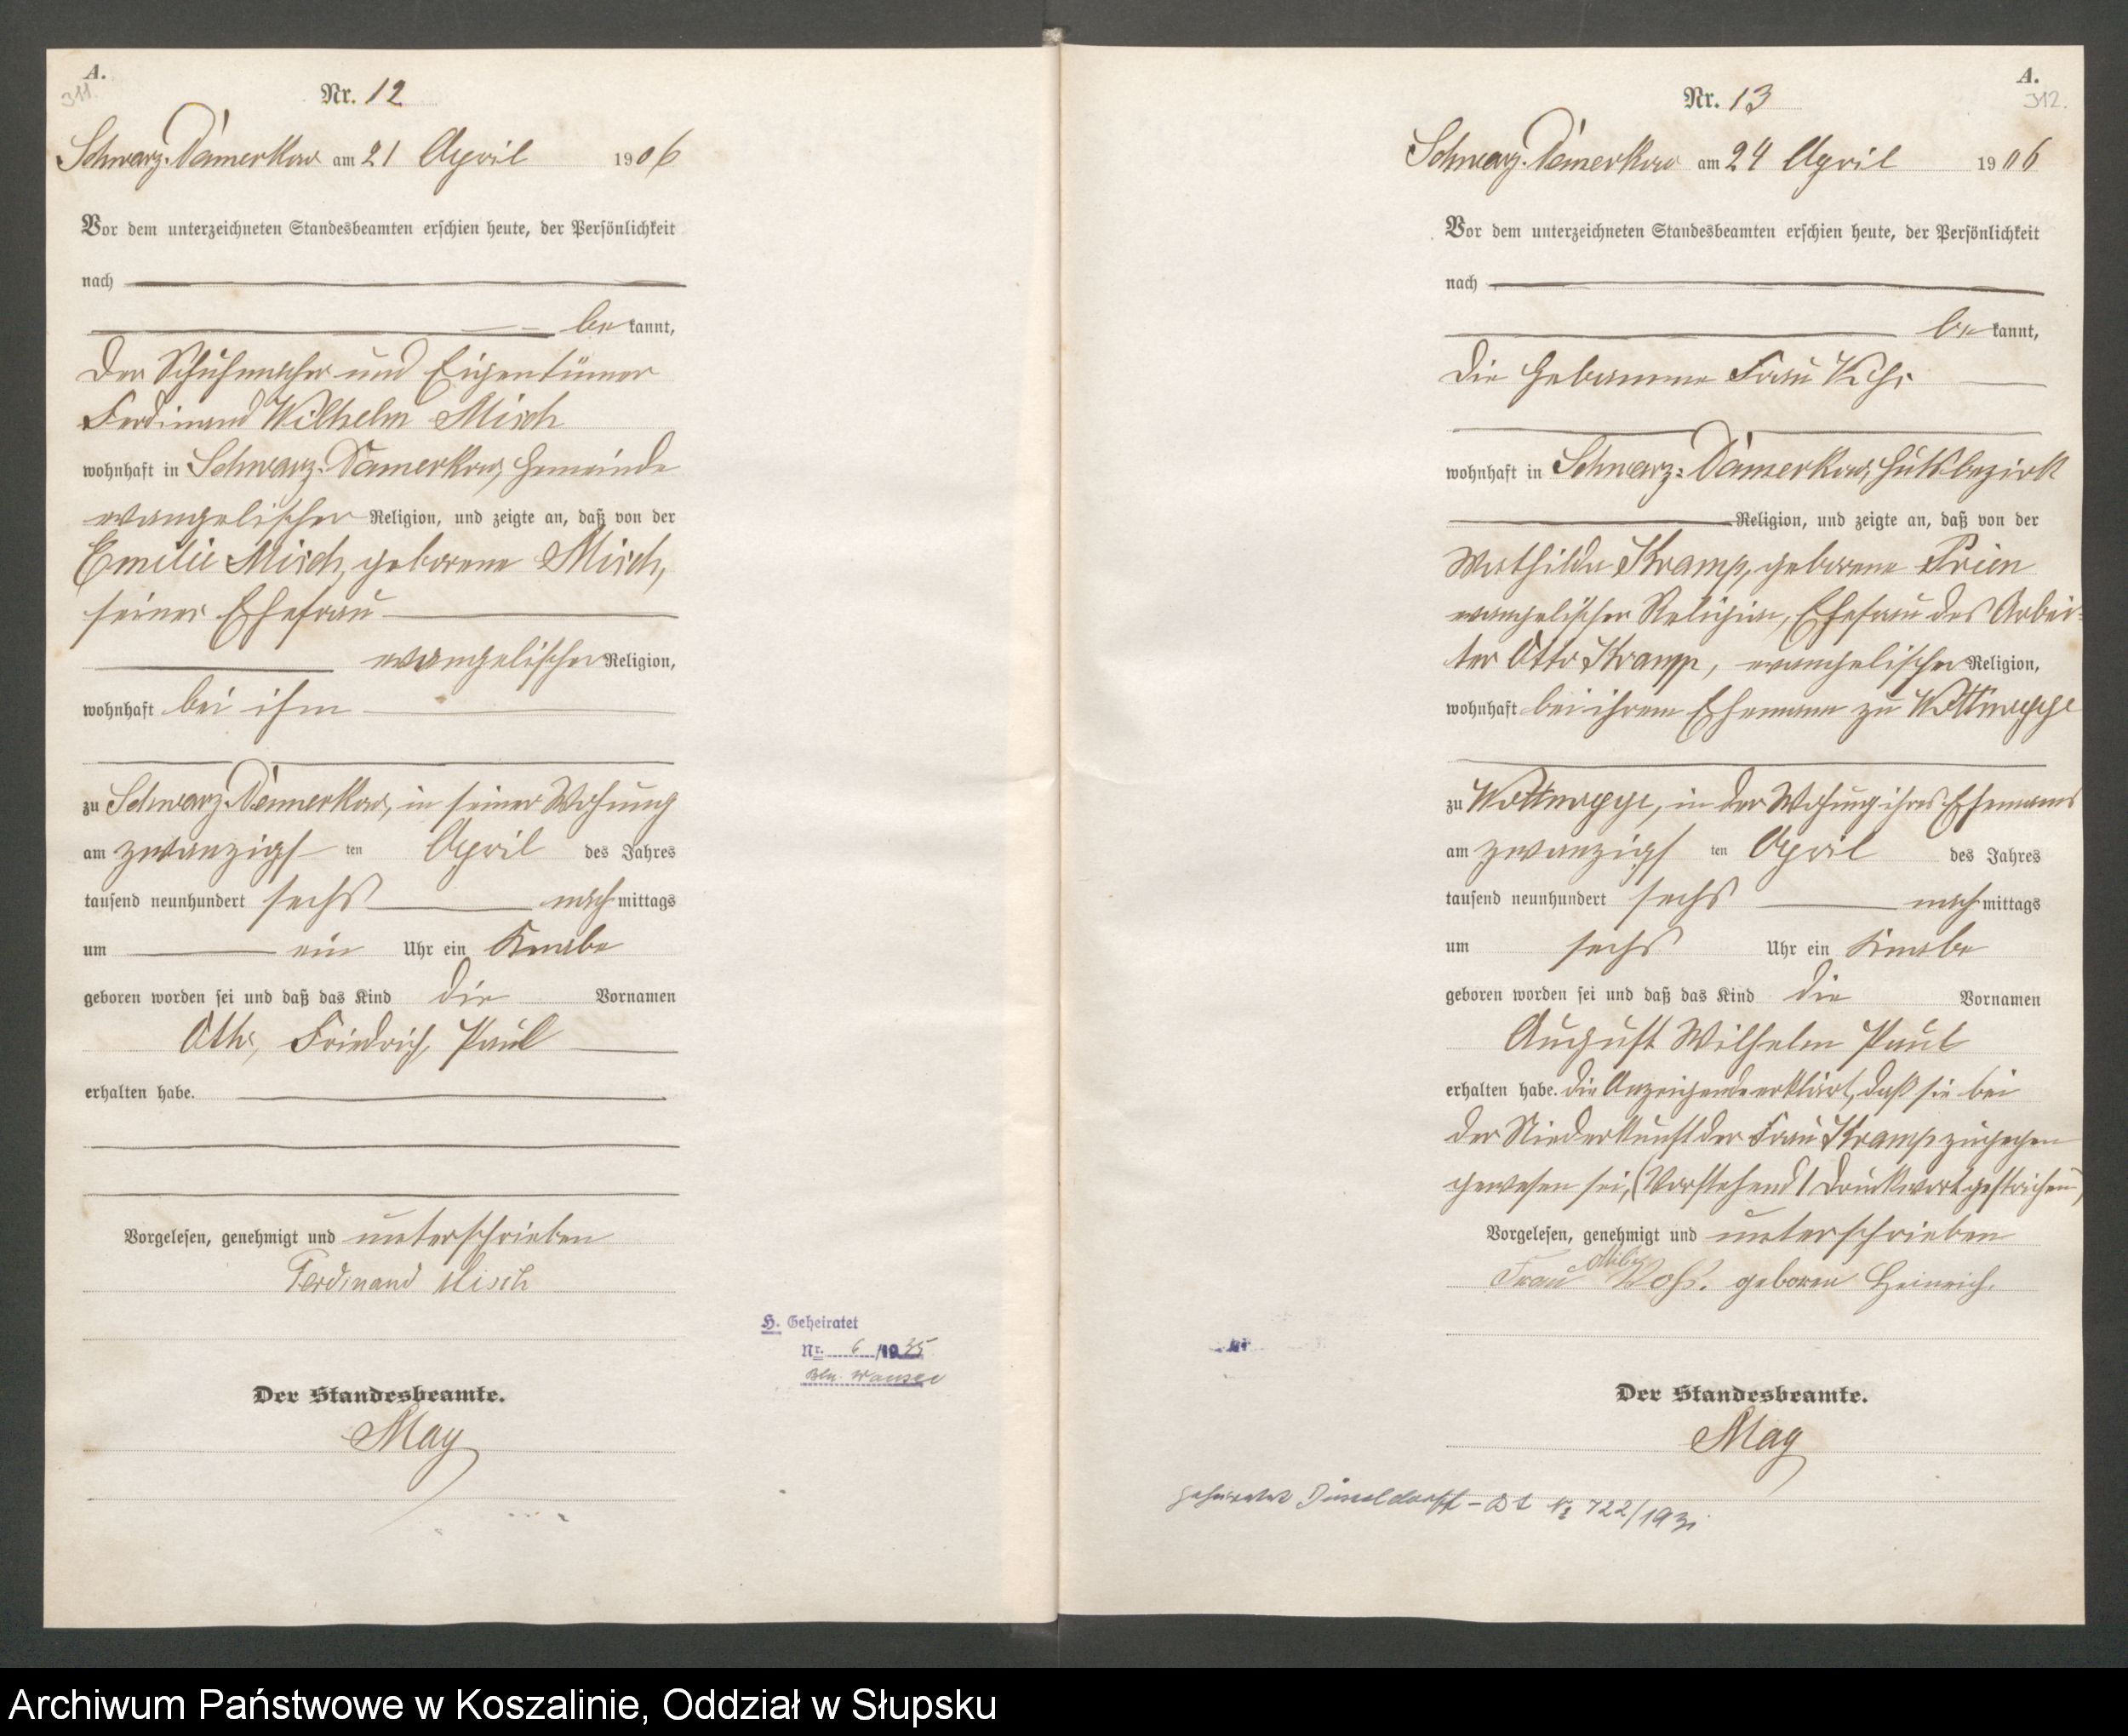 A.
311.
Nr. 12
Schwarz-Damerkow am 21 April 1906
Vor dem unterzeichneten Standesbeamten erschien heute, der Persönlichkeit
nach
bekannt,
der Schuhmacher und Eigentümer
Ferdinand Wilhelm Misch
wohnhaft in Schwarz-Damerkow, Gemeinde
evangelischer Religion, und zeigte an, daß von der
Emilie Misch, geborene Misch,
seiner Ehefrau
evangelischer Religion,
wohnhaft bei ihm
zu Schwarz-Damerkow, in seiner Wohnung
am zwanzigsten April des Jahres
tausend neunhundert sechs nachmittags
um ein Uhr ein Knabe
geboren worden sei und daß das Kind die Vornamen
Otto, Friedrich, Paul
erhalten habe.
Vorgelesen, genehmigt und unterschrieben
Ferdinand Misch
H. Geheiratet
Nr. 6/1935
Bln. Wansee
Der Standesbeamte.
May
A.
312.
Nr. 13
Schwarz-Damerkow am 24 April 1906
Vor dem unterzeichneten Standesbeamten erschien heute, der Persönlichkeit
nach
bekannt,
die Hebamme Frau Vohs
wohnhaft in Schwarz-Damerkow, Gutsbezirk
Religion, und zeigte an, daß von der
Mathilde Kramp, geborene Prien
evangelischer Religion, Ehefrau des Arbei-
ter Otto Kramp, evangelischer Religion,
wohnhaft bei ihrem Ehemann zu Wottnogge
zu Wottnogge, in der Wohnung ihres Ehemanns
am zwanzigsten April des Jahres
tausend neunhundert sechs nachmittags
um sechs Uhr ein Knabe
geboren worden sei und daß das Kind die Vornamen
August Wilhelm Paul
erhalten habe. Die Anzeigende erklärt, daß sie bei
der Niederkunft der Frau Kramp zugegen
gewesen sei, (Vorstehend 1 Druckwort gestrichen)
Vorgelesen, genehmigt und unterschrieben
Frau Vohs. geboren Heinrich.
Der Standesbeamte.
May
geheiratet Düsseldorf - Nr 722/193
Archiwum Państwowe w Koszalinie, Oddział w Słupsku